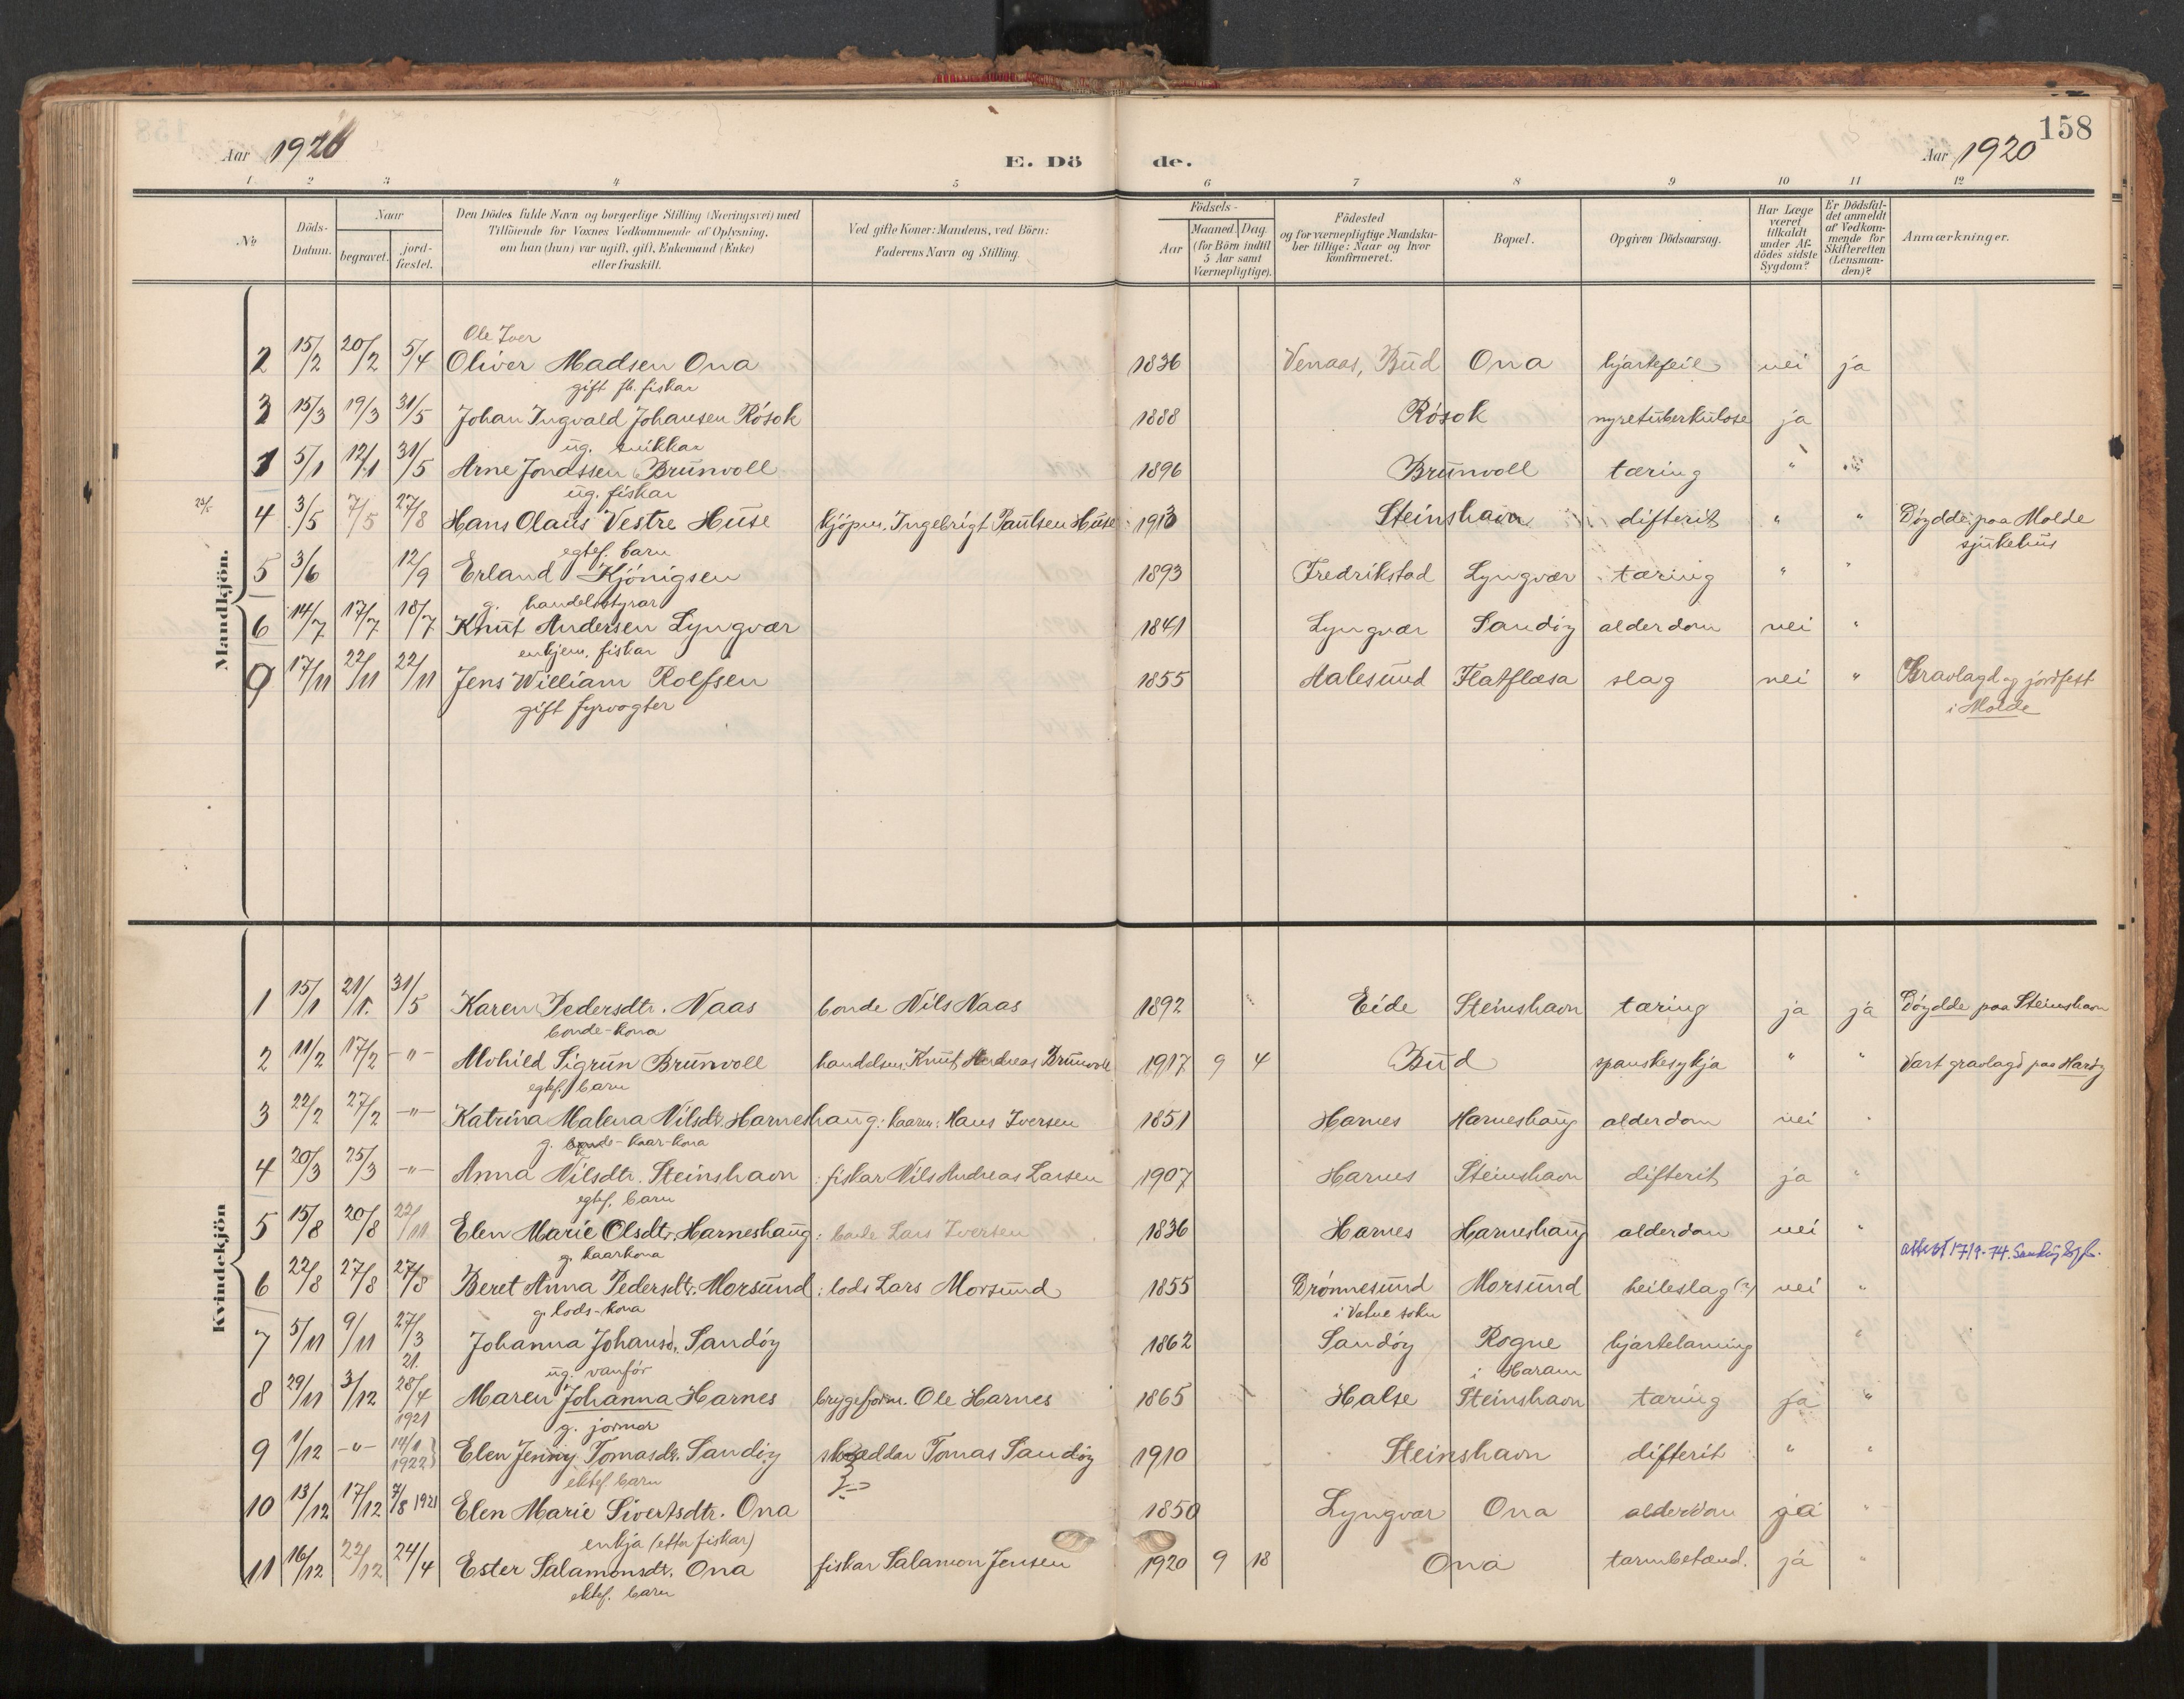 158
Aar 1920
E. Dö
de.
Aar 1920
1 2 3 4 5 6 7 8 9 10 11 12
No.
Döds-
Datum.
Naar
begravet.
jord-
fæstet.
Den Dödes fulde Navn og borgerlige Stilling (Næringsvei) med
Tilföiende for Voxnes Vedkommende af Oplysning,
om han (hun) var ugift, gift, Enkemand (Enke)
eller fraskilt.
Ved gifte Koner: Mandens, ved Börn:
Faderens Navn og Stilling.
Födsels-
Aar
Maaned. Dag.
(for Börn indtil
5 Aar samt
Værnepligtige).
Födested
og for værnepligtige Mandska-
ber tillige: Naar og hvor
konfirmeret.
Bopæl.
Opgiven Dödsaarsag.
Har Læge
været
tilkaldt
under Af-
dödes sidste
Sygdom?
Er Dödsfal-
det anmeldt
af Vedkom-
mende for
Skifteretten
(Lensman-
den)?
Anmærkninger.
Mandkjön.
Ole Iver
2 15/2 20/2 5/4 Oliver Madsen Ona 1836 Venaas, Bud Ona hjartefeil nei ja
gift fh. fiskar
3 15/3 19/3 31/5 Johan Ingvald Johansen Rósok 1888 Rósok nyretuberkulose ja
ug. snikkar
1 5/1 12/1 31/5 Arne Jonassen Brunvoll 1896 Brunvoll tæring " "
ug. fiskar
4 3/5 7/5 27/8 Hans Olaus Vestre Huse kjópm. Ingebrigt Paulsen Huse 1913 Steinshavn difterit " " Dóydde paa Molde
egtef. barn sjukehus
5 3/6 12/9 Erland Kjónigsen 1893 Fredrikstad Lyngvær tæring " "
g. handelsstyrar
6 14/7 17/7 18/7 Knut Andersen Lyngvær 1841 Lyngvær Sandóy alderdom nei "
enkjem. fiskar
9 17/11 22/11 22/11 Jens William Rolfsen 1855 Aalesund Flatflæsa slag nei " Gravlagd og jordfest
gift fyrvogter i Molde
Kvindekjön
1 15/1 21/1. 31/5 Karen Pedersdtr. Naas bonde Nils Naas 1892 Eide Steinshavn tæring ja ja Dóydde paa Steinshavn
bonde-kona
2 11/2 17/2 -"- Alvhild Sigrun Brunvoll handelsm. Knut Andreas Brunvoll 1917 9 4 Bud spanskesykja " " Vart gravlagd paa Haróy
egtef. barn
3 22/2 27/2 -"- Katrina Malena Nilsdtr. Harneshaug: kaarm: Hans Iversen 1851 Harnes Harneshaug alderdom nei "
g. kaar-kona
4 20/3 25/3 -"- Anna Nilsdtr. Steinshavn : fiskar Nils Andreas Larsen 1907 Harnes Steinshavn difterit ja "
egtef. barn
5 15/8 20/8 22/11 Elen Marie Olsdtr. Harneshaug : Lars Iversen 1836 Harnes Harneshaug alderdom nei "
g. kaarkona
attest 17/9-74.
6 22/8 27/8 27/8 Beret Anna Pedersdtr. Morsund : lods Lars Morsund 1855 Drónnesund Morsund heileslag (?) nei "
g. lods-kona i Vatne sokn
7 5/11 9/11 27/3 Johanna Johansd. Sandóy 1862 Sandóy Rogne hjartelaming "
21.
ug. vanfór i Haram
8 29/11 3/12 28/4 Maren Johanna Harnes bryggeform. Ole Harnes 1865 Halse Steinshavn tæring ja "
1921
g. jormor
9 1/12 -"- 14/1 Elen Jenny Tomasdr. Sandóy skræddar Tomas Sandóy 1910 Steinshavn difterit " "
1922
ektef. barn
10 13/12 17/12 7/8 1921 Elen Marie Sivertsdtr. Ona 1850 Lyngvær Ona alderdom ja "
enkja (etter fiskar)
11 16/12 22/12 24/4 Ester Salamonsdr. Ona fiskar Salamon Jensen 1920 9 18 Ona tarmbetænd. ja "
ektef. barn